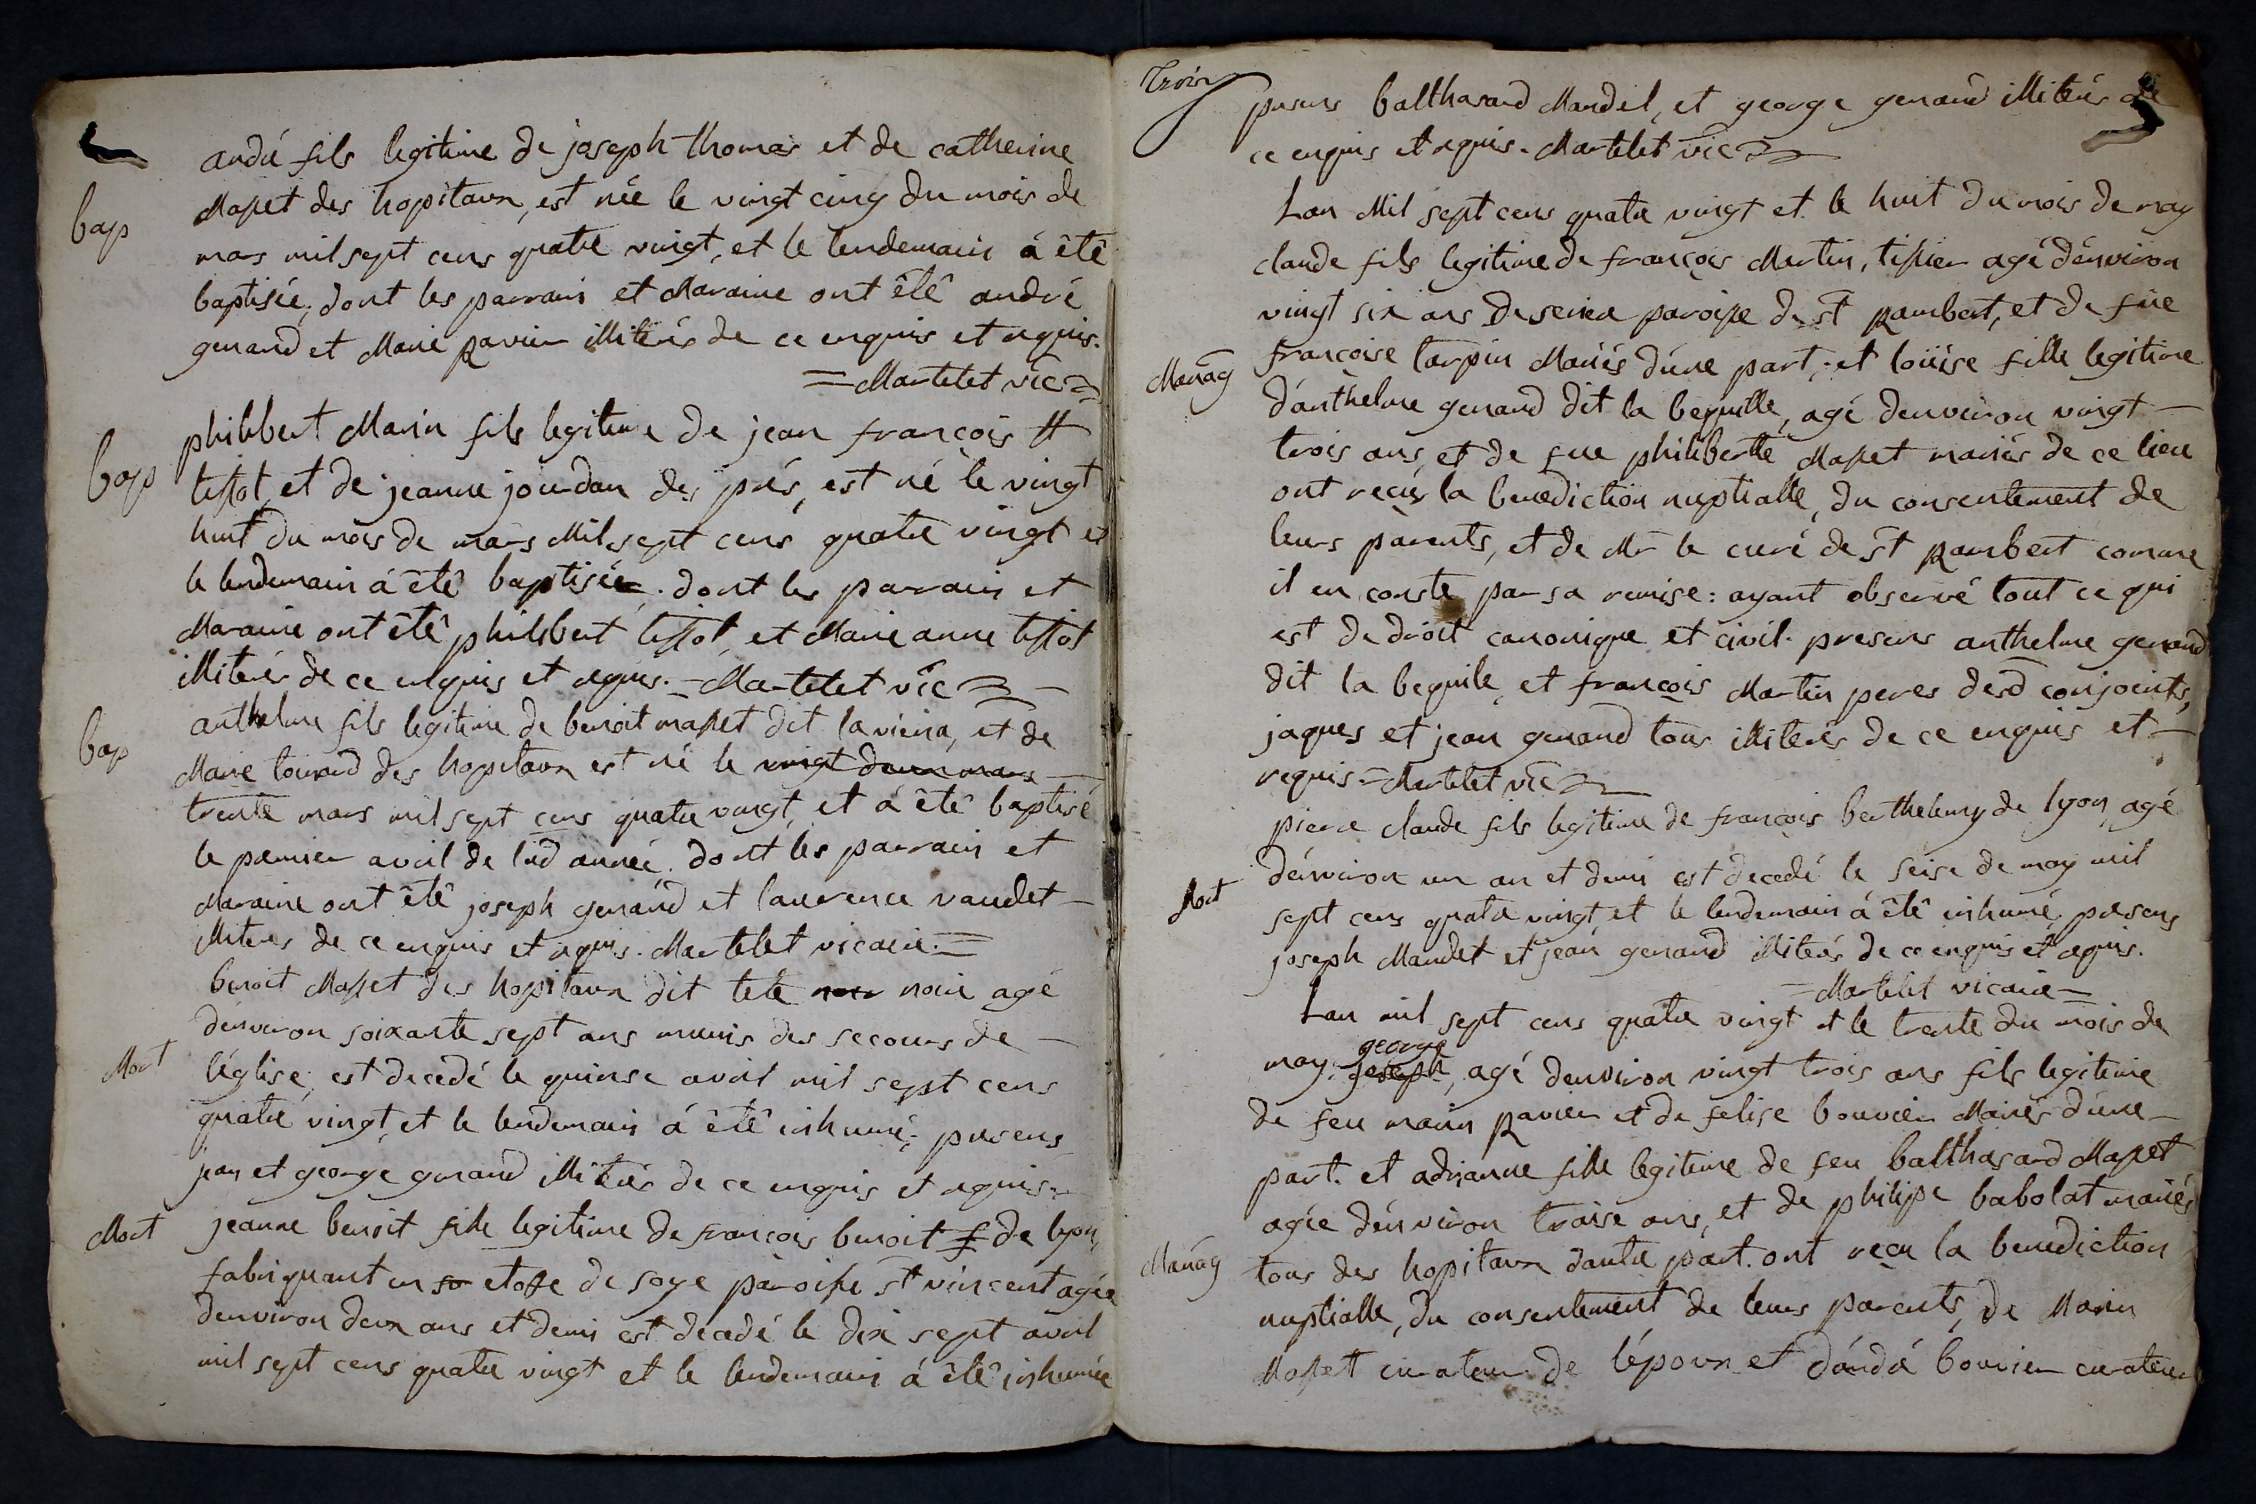 andré fils legitime de joseph thomas et de catherine
bap
Masset des hopitaux, est née le vingt cinq du mois de
mars mil sept cens quatre vingt, et le lendemain á êtê
baptisée, dont les parrain et Maraine ont êtê andré
genand et Marie ravier illiterés de ce enquis et requis.
= Martelet vic
bap
philibert Marin fils legitime de jean françois tt
tissot, et de jeanne jourdan des prés, est né le vingt
huit du mois de mars Mil sept cens quatre vingt et
le lendemain á êtê baptisée. dont les parrain et
Maraine ont êtê philibert tissot, et Marie anne tissot
illiterés de ce enquis et requis. - Martelet vic
bap
anthelme fils legitime de benoit masset dit la viena, et de
Marie tonard des hopitaux est né le vingt deux mars
trente mars mil sept cens quatre vingt, et á êtê baptisé
le premier avril de lad année. dont les parrain et
Maraine ont êtê joseph genand et laurence vaudet
illiterés de ce enquis et requis. Martelet vicaire =
benoit Masset des hopitaux dit tete noir noire agé
denviron soixante sept ans munis des secours de
Mort
léglise, est decedé le quinse avril mil sept cens
quatre vingt, et le lendemain á êtê inhumé; presens
jean et george genand illiterés de ce enquis et requis.
Mort
jeanne benoit fille legitime de françois benoit f de lyon,
fabriquant en so etoffe de soye paroisse st vincent agée
denviron deux ans et demi est decedé le dix sept avril
mil sept cens quatre vingt et le lendemain á êtê inhumée
trois
presens balthasard Mandel, et george genand illiterés de
ce enquis et requis. Martelet vic
Lan Mil sept cens quatre vingt et le huit du mois de may
claude fils legitime de françois Martin, tissier agé dénviron
vingt six ans de paroisse de st rambert, et de füe
Mariag
françoise tarpin Mariés dúne part, et loüise fille legitime
dánthelme genand dit la bequille, agé denviron vingt
trois ans, et de feue philiberte Masset mariés de ce lieu
ont reçus la benediction nuptialle, du consentement de
leurs parents, et de Mr le curé de st rambert comme
il en conste par sa remise: ayant observé tout ce qui
est de droit canonique et civil. presens anthelme genand
dit la bequile, et françois Martin peres desd conjoints,
jaques et jean genand tous illiterés de ce enquis et
requis = Martelet vic
pierre claude fils legitime de françois berthelemy de lyon, agé
dénviron un an et demi est decedé le seise de may mil
Mort
sept cens quatre vingt, et le lendemain á êtê inhumé, presens
joseph Mandet et jean genand illiterés de ce enquis et requis.
= Martelet vicaire
Lan mil sept cens quatre vingt et le trente du mois de
george
may: joseph, agé denviron vingt trois ans fils legitime
de feu marin ravier et de felise bouvier Mariés dúne
part. et adrianne fille legitime de feu balthasard Masset
agée dénviron traise ans, et de philipe babolat mariés
Mariag
tous des hopitaux dautre part. ont reçu la benediction
nuptialle, du consentement de leurs parents, de Marin
Masset curateur de lépoux et dándré bouvier curateur